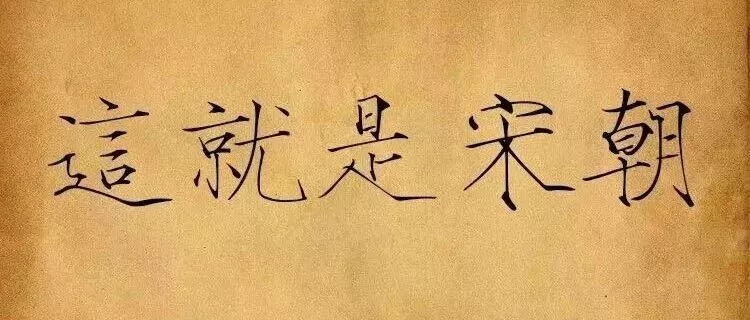 這就是宋朝